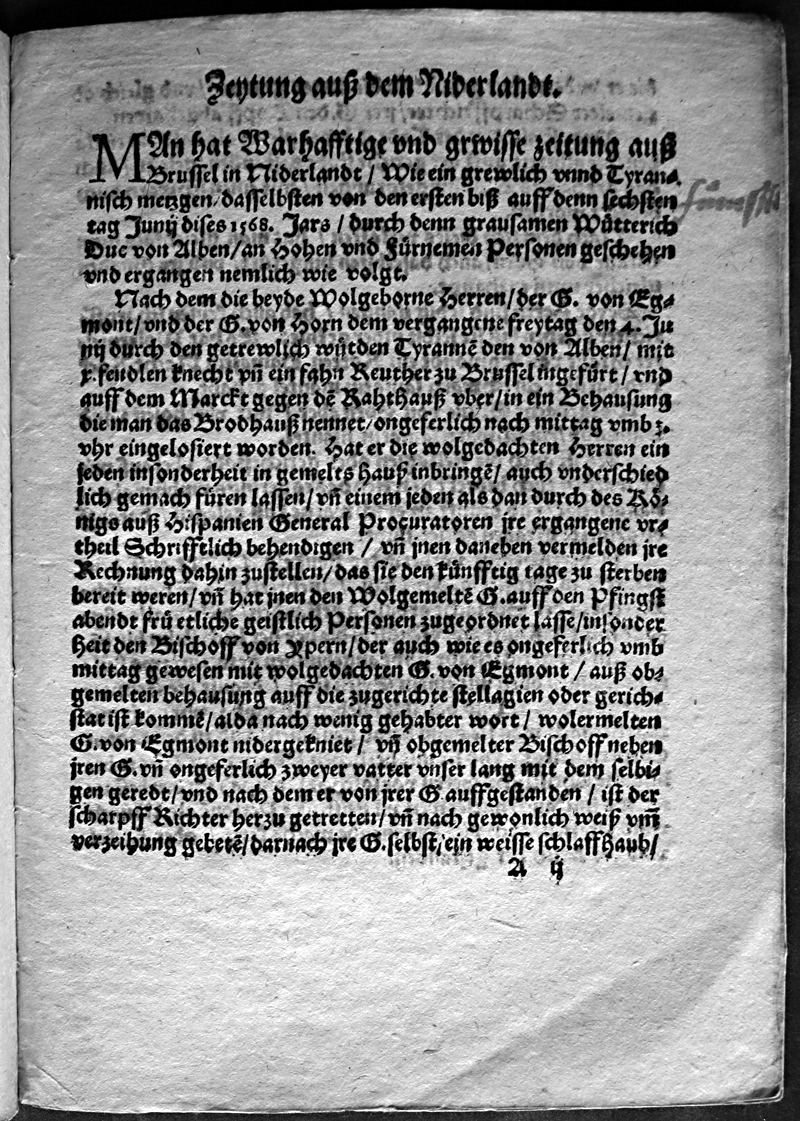 Zeytung auß dem Niderlandt.
MAn hat Warhafftige vnd grwisse zeitung auß
Brussel in Niderlandt / Wie ein grewlich vnnd Tyran⸗
nisch metzgen / dasselbsten von den ersten biß auff denn sechsten
tag Junij dises 1568. Jars / durch denn grausamen Wůtterich
Duc von Alben / an Hohen vnd Fürnemen Personen geschehen
vnd ergangen nemlich wie volgt.
Nach dem die beyde Wolgeborne Herren / der G. von Eg⸗
mont / vnd der G. von Horn dem vergangene freytag den 4. Ju
nij durch den getrewlich wůtden Tyrannē den von Alben / mit
x. fendlen knecht vñ ein fahn Reuther zu Brussel ingefürt / vnd
auff dem Marckt gegen dē Rahthauß vber / in ein Behausung
die man das Brodhauß nennet / ongeferlich nach mittag vmb 3.
vhr eingelosiert worden. Hat er die wolgedachten Herren ein
jeden insonderheit in gemelts hauß inbringē / auch vnderschied
lich gemach füren lassen / vñ einem jeden als dan durch des Kö⸗
nigs auß Hispanien General Procuratoren jre ergangene vr⸗
theil Schrifftlich behendigen / vñ jnen daneben vermelden jre
Rechnung dahin zustellen / das sie den künfftig tage zu sterben
bereit weren / vñ hat jnen den Wolgemeltē G. auff den Pfingst
abendt frů etliche geistlich Personen zugeordnet lasse / insonder
heit den Bischoff von Ypern / der auch wie es ongeferlich vmb
mittag gewesen mit wolgedachten G. von Egmont / auß ob⸗
gemelten behausung auff die zugerichte stellagien oder gerich⸗
stat ist kommē / alda nach wenig gehabter wort / wolermelten
G. von Egmont nidergekniet / vñ obgemelter Bischoff neben
jren G. vñ ongeferlich zweyer vatter vnser lang mit dem selbi⸗
gen geredt / vnd nach dem er von jrer G auffgestanden / ist der
scharpff Richter herzu getretten / vñ nach gewonlich weiß vm̄
verzeihung gebetē / darnach jre G. selbst / ein weisse schlaffhaub /
A ij